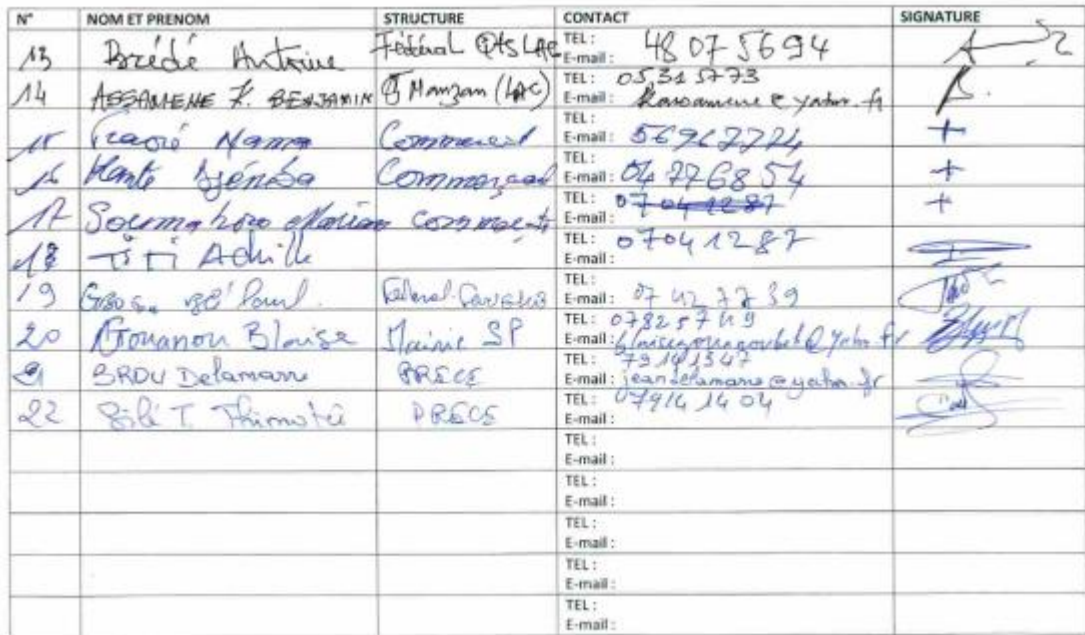 N° NOM ET PRENOM STRUCTURE CONTACT SIGNATURE
13 Brédé Antoine Fédéral Qts LAC TEL : E-mail : 48 07 56 94
14 ASSAMENE K. BENJAMIN Manzan (LAC) TEL : 05 31 57 73
E-mail : Kassamene@yahoo.fr
15 Traoré Nama TEL :
E-mail : 56962224
16 Djénéba Commerçant TEL :
E-mail : 04 77 68 54
17 Soumahoro Mariam TEL : 07 04 12 87
E-mail :
18 TiTi Achille TEL : 07 04 12 87
E-mail :
19 Paul Fédéral TEL :
E-mail : 07 42 77 39
20 Gouanou Blaise Mairie SP TEL : 07825749
E-mail :
21 BROU Delamarre PRECE TEL : 79 14 13 47
E-mail : jeandelamarre@yahoo.fr
22 T. Thimoté PRECE TEL : 07914 14 04
E-mail :
TEL :
E-mail :
TEL :
E-mail :
TEL :
E-mail :
TEL :
E-mail :
TEL :
E-mail :